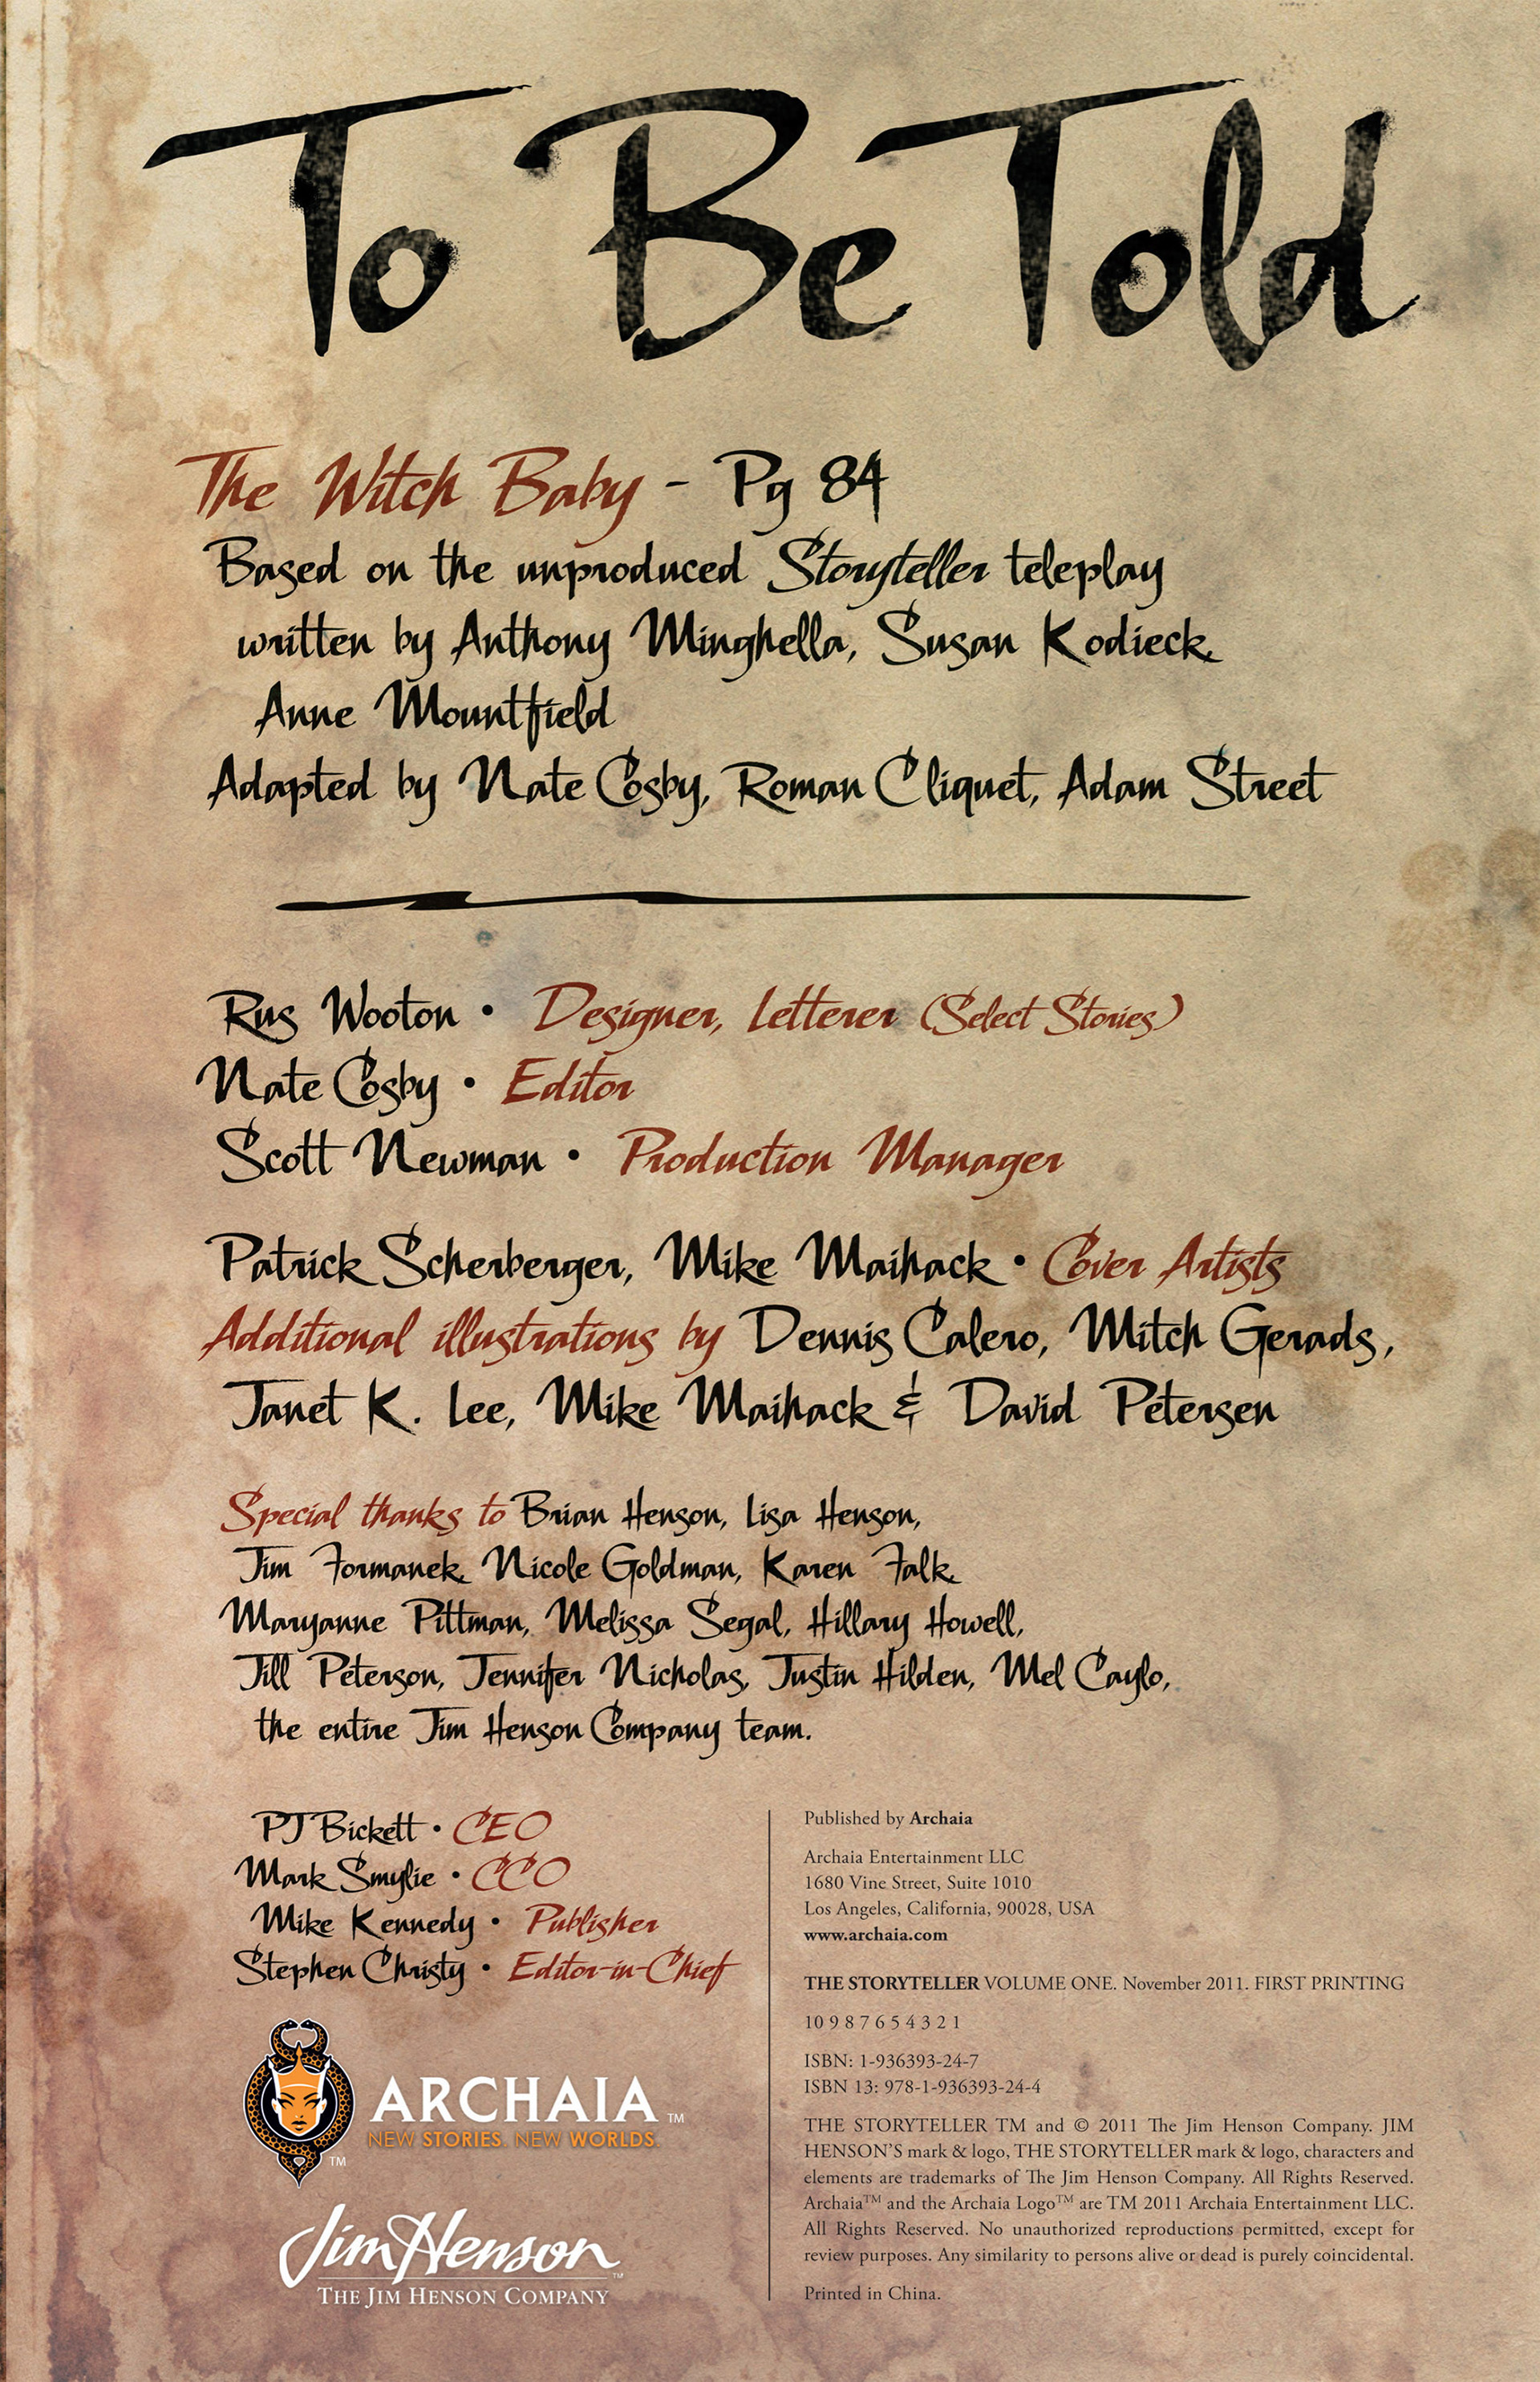 To Be Told
The Witch Baby - Pg 84
Based on the unproduced Storyteller teleplay
written by Anthony Minghella, Susan Kodieck,
Anne Mountfield
Adapted by Nate Cosby, Roman Cliquet, Adam Street
Rus Wooton • Designer, Letterer (Select Stories)
Nate Cosby • Editor
Scott Newman • Production Manager
Patrick Scherberger, Mike Maihack • Cover Artists
Additional illustrations by Dennis Calero, Mitch Gerads,
Janet K. Lee, Mike Maihack & David Petersen
Special thanks to Brian Henson, Lisa Henson,
Jim Formanek, Nicole Goldman, Karen Falk,
Maryanne Pittman, Melissa Segal, Hillary Howell,
Jill Peterson, Jennifer Nicholas, Justin Hilden, Mel Caylo,
the entire Jim Henson Company team.
PJ Bickett • CEO
Mark Smylie • CCO
Mike Kennedy • Publisher
Stephen Christy • Editor-in-Chief
ARCHAIA TM
NEW STORIES. NEW WORLDS.
TM
Jim Henson TM
THE JIM HENSON COMPANY
Published by Archaia
Archaia Entertainment LLC
1680 Vine Street, Suite 1010
Los Angeles, California, 90028, USA
www.archaia.com
THE STORYTELLER VOLUME ONE. November 2011. FIRST PRINTING
10 9 8 7 6 5 4 3 2 1
ISBN: 1-936393-24-7
ISBN 13: 978-1-936393-24-4
THE STORYTELLER TM and © 2011 The Jim Henson Company. JIM
HENSON'S mark & logo, THE STORYTELLER mark & logo, characters and
elements are trademarks of The Jim Henson Company. All Rights Reserved.
Archaia™ and the Archaia Logo™ are TM 2011 Archaia Entertainment LLC.
All Rights Reserved. No unauthorized reproductions permitted, except for
review purposes. Any similarity to persons alive or dead is purely coincidental.
Printed in China.